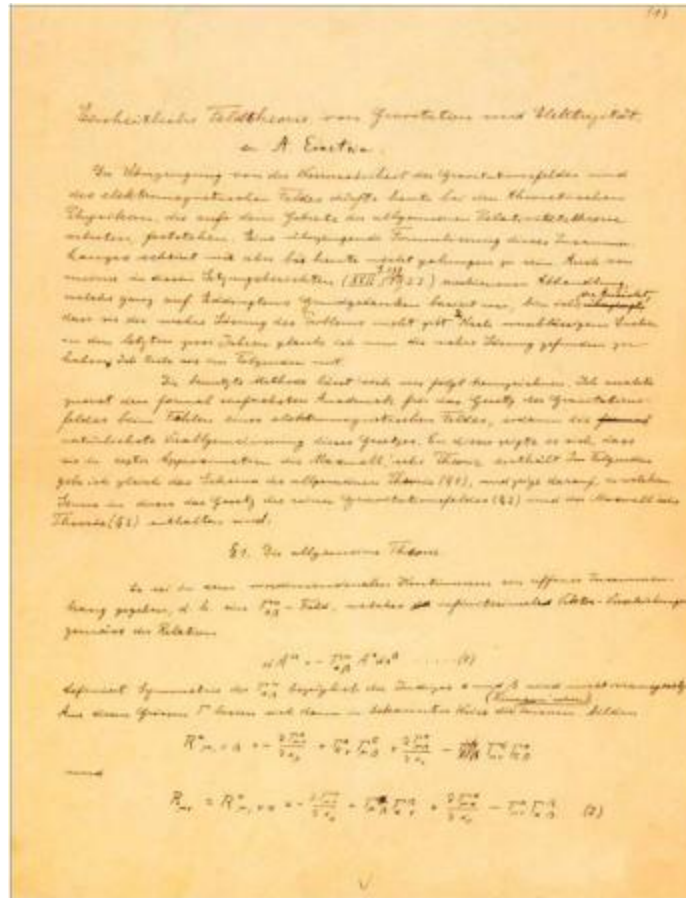 (1)
Einheitliche Feldtheorie von Gravitation und Elektrizität.
von A. Einstein.
Die Überzeugung von der Wesenseinheit des Gravitationsfeldes und
des elektromagnetischen Feldes dürfte heute bei den theoretischen
Physikern, die auf dem Gebiete der allgemeinen Relativitätstheorie
arbeiten, feststehen. Eine überzeugende Formulierung dieses Zusammen-
hanges scheint mir aber bis heute nicht gelungen zu sein. Auch von
meiner in diesen Sitzungsberichten (XVII, 1923) erschienenen Abhandlung,
welche ganz auf Eddingtons Grundgedanken basiert war, bin ich der Ansicht,
dass sie die wahre Lösung des Problems nicht gibt. Nach unablässigem Suchen
in den letzten zwei Jahren glaube ich nun die wahre Lösung gefunden zu
haben. Ich teile sie im Folgenden mit.
Die benutzte Methode lässt sich wie folgt kennzeichnen. Ich suchte
zuerst den formal einfachsten Ausdruck für das Gesetz des Gravitations-
feldes beim Fehlen eines elektromagnetischen Feldes, sodann die
natürlichste Verallgemeinerung dieses Gesetzes. Von dieser zeigte es sich, dass
sie in erster Approximation die Maxwell'sche Theorie enthält. Im Folgenden
gebe ich gleich das Schema der allgemeinen Theorie (§1), und zeige darauf, in welchem
Sinne in dieser das Gesetz des reinen Gravitationsfeldes (§2) und die Maxwell'sche
Theorie (§3) enthalten sind.
§1. Die allgemeine Theorie.
Es sei in dem vierdimensionalen Kontinuum ein affiner Zusammen-
hang gegeben, d. h. ein Γ-Feld, welches infinitesimale Vektor-Verschiebungen
gemäss der Relation
dA = - Γ A dx ...... (1)
definiert. Symmetrie der Γ bezüglich der Indizes α und β wird nicht vorausgesetzt.
Aus diesen Grössen Γ lassen sich dann in bekannter Weise die Tensoren bilden
und
(2)